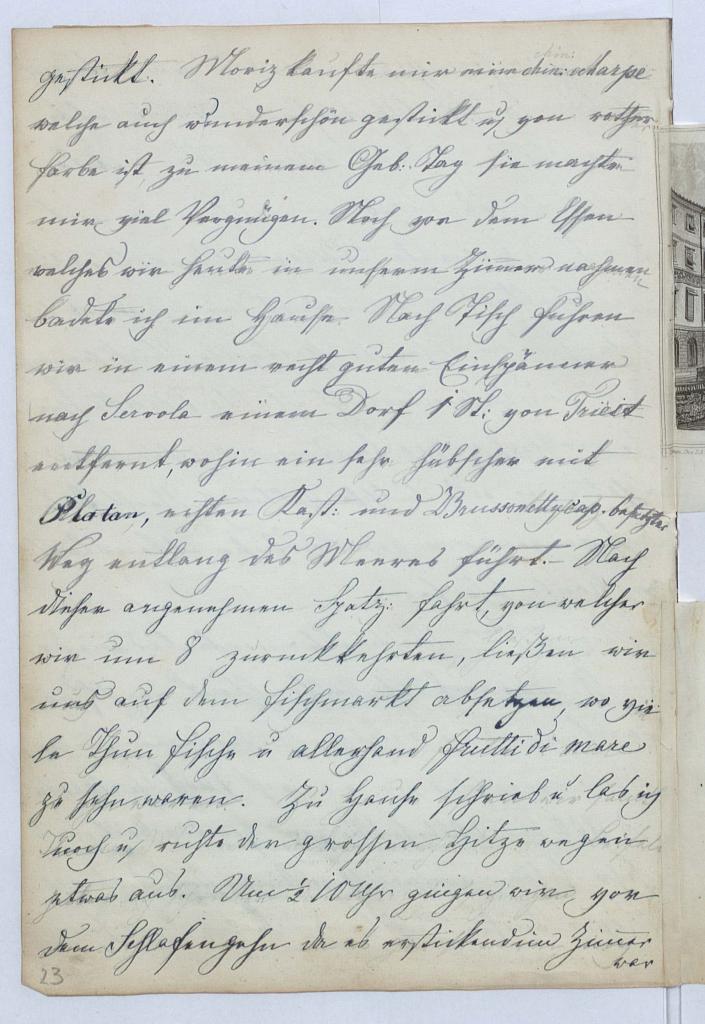 gestickt. Moriz kaufte mir eine chin: echarpe
welche auch wunderschön gestickt u von rother
Farbe ist zu meinem Geb: Tag sie machte
mir viel Vergnügen. Noch vor dem Essen
welches wir heute in unserm Zimmer nahmen
badete ich im Hause. Nach Tisch fuhren
wir in einem recht guten Einspänner
nach Servola einem Dorf 1 St: von Triest
entfernt, wohin ein sehr hübscher mit
Platan, echten Kast: und besetzter
Weg entlang des Meeres führt. - Nach
dieser angenehmen Spatz: fahrt, von welcher
wir um 8 zurückkehrten, ließen wir
uns auf dem Fischmarkt absetzen, wo vie
le Thun fische u allerhand frutti di mare
zu sehn waren. Zu Hause schrieb u las ich
noch u ruhte der grossen Hitze wegen
etwas aus. Um ½ 10 Uhr gingen wir vor
dem Schlafengehn da es erstickend im Zimmer
war
23